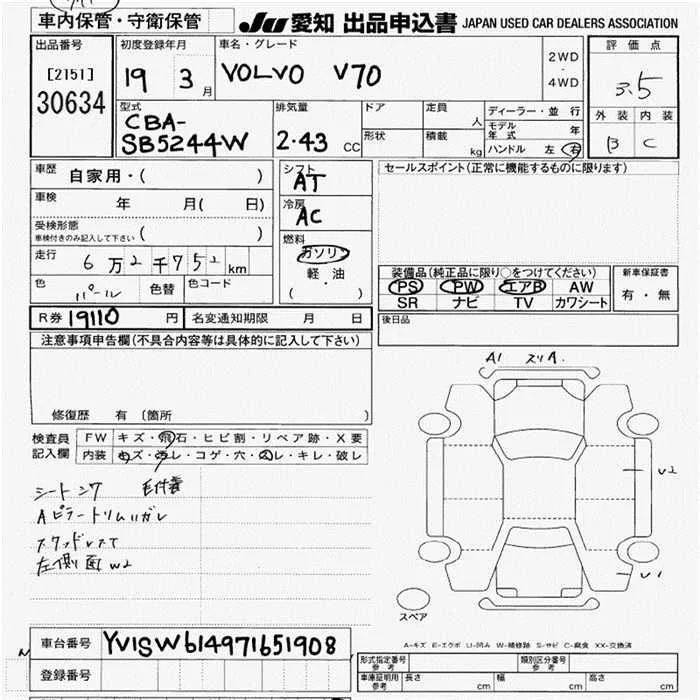 車内保管・守衛保管
JU 愛知 出品申込書 JAPAN USED CAR DEALERS ASSOCIATION
出品番号
[2151]
30634
初度登録年月
19 3 月
車名・グレード
VOLVO V70
2WD
・
4WD
評価点
3.5
外装 内装
B C
型式
CBA-
SB5244W
排気量
2.43 CC
ドア
定員 人
形状
積載 kg
ディーラー・並行
モデル年式 年
ハンドル 左 右
車歴 自家用・( )
車検 年 月( 日)
受検形態
車検付きのみ記入して下さい ( )
走行 6万2千752km
色 パール 色替 色コード
シフト
AT
冷房
AC
燃料
ガソリン
軽・油
( )
セールスポイント(正常に機能するものに限ります)
装備品(純正品に限り○をつけてください)
PS PW エアB AW
SR ナビ TV カワシート
新車保証書
有・無
R券 19110 円 名変通知期限 月 日
後日品
注意事項申告欄(不具合内容等は具体的に記入して下さい)
修復歴 有 〔箇所 〕
検査員
記入欄
FW キズ・飛石・ヒビ割・リペア跡・X要
内装 キズ・汚レ・コゲ・穴・スレ・キレ・破レ
A1 スリA.
シート
Aピラートリムハガレ
左側面W2
U2
U1
スペア
A-キズ E-エクボ U-凹み W-補修跡 S-サビ C-腐食 XX-交換済
車台番号 YV1SW614971651908
登録番号
形式指定番号
参考
類別区分番号
参考
車庫証明用
参考
長さ cm 幅 cm 高さ cm